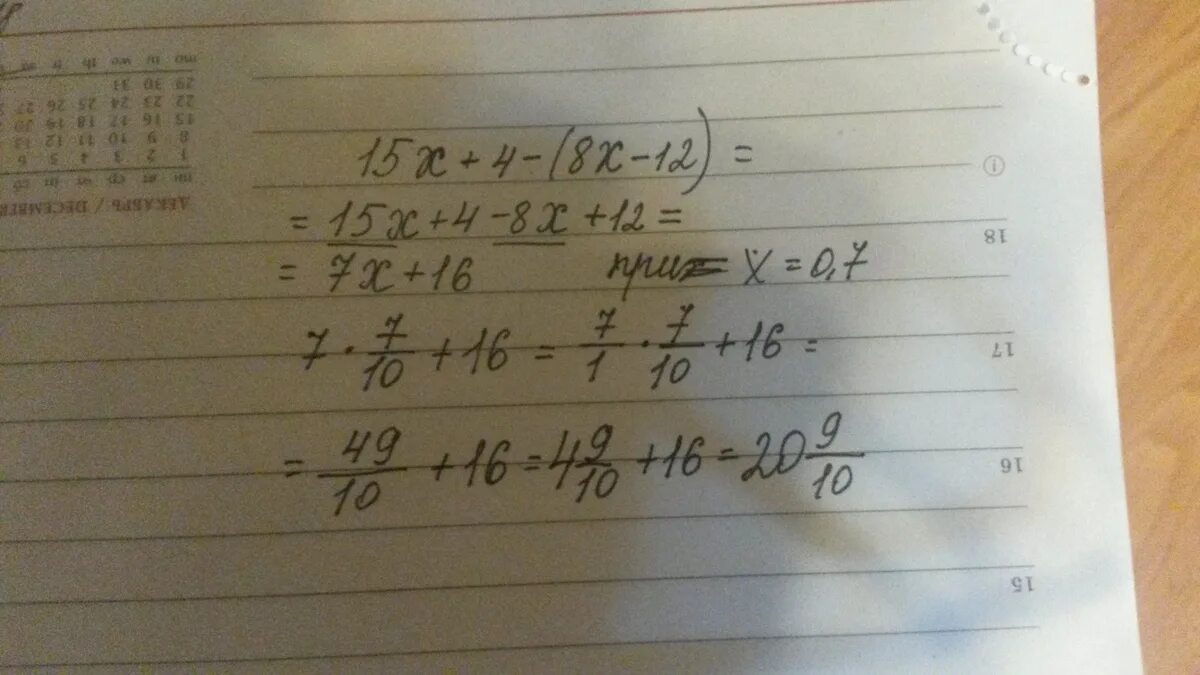 15x + 4 - (8x - 12) =
= 15x + 4 - 8x + 12 =
= 7x + 16 при x = 0,7
7 · 7/10 + 16 = 7/1 · 7/10 + 16 =
= 49/10 + 16 = 4 9/10 + 16 = 20 9/10
18
17
16
15
ДЕКАБРЬ / DECEMBER
пн вт ср чт пт сб
1 2 3 4 5 6
8 9 10 11 12 13
15 16 17 18 19 20
22 23 24 25 26 27
29 30 31
mo tu we th fr